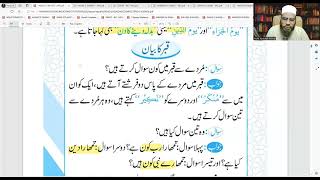 یومُ الجزاء اور یومُ الدّین یعنی بدلہ دینے کا دن بھی کہا جاتا ہے۔
قبر کا بیان
سوال: مُردے سے قبر میں کون سوال کرتے ہیں؟
جواب: مُردے کے پاس دو فرشتے آتے ہیں، ایک کو ان
میں سے "مُنکَر" اور دوسرے کو "نَکِیر" کہتے ہیں، وہ ہر مُردے سے
تین سوال کرتے ہیں۔
سوال: وہ تین سوال کیا ہیں؟
جواب: پہلا سوال: تمہارا رب کون ہے؟ دوسرا سوال: تمہارا دین
کیا ہے؟ اور تیسرا سوال: تمہارے نبی کون ہیں؟